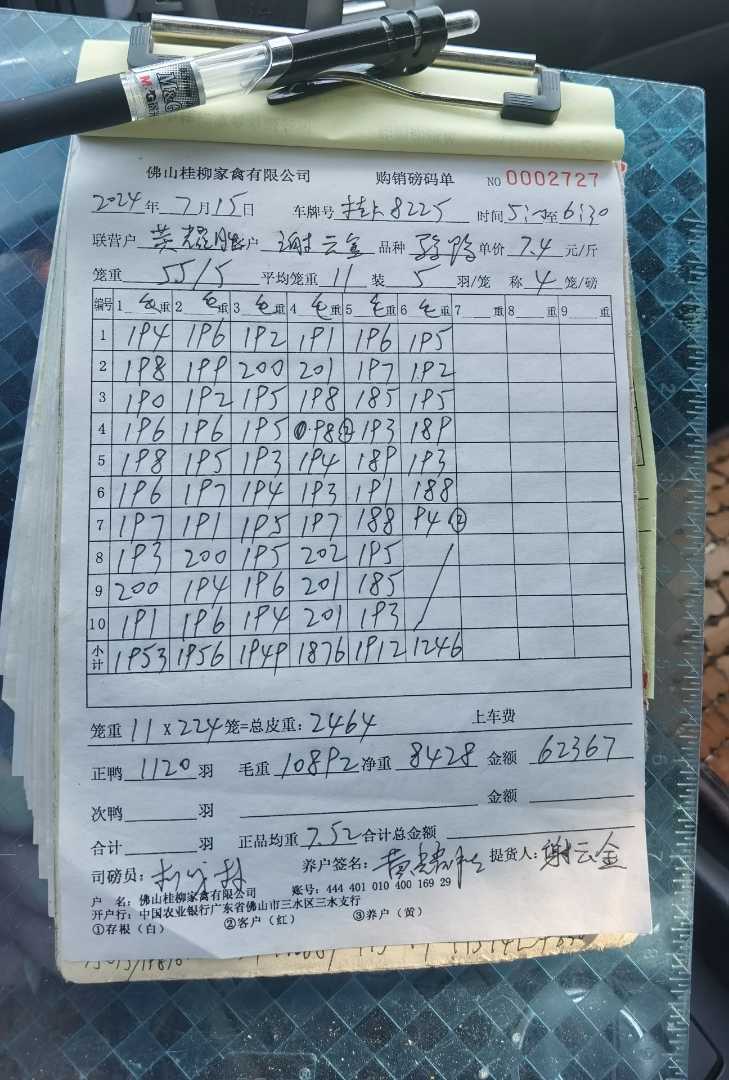 M&G
佛山桂柳家禽有限公司 购销磅码单 NO 0002727
2024 年 7 月 15 日 车牌号 8225 时间 至 6:30
联营户 黄 户 谢云金 品种 鸭 单价 7.4 元/斤
笼重 55/5 平均笼重 11 装 5 羽/笼 称 4 笼/磅
编号 1 毛重 2 毛重 3 毛重 4 毛重 5 毛重 6 毛重 7 重 8 重 9 重
1 194 196 192 191 196 195
2 198 199 200 201 197 192
3 190 192 195 198 185 195
4 196 196 195 98② 193 189
5 198 195 193 194 189 193
6 196 197 194 193 191 188
7 197 191 195 197 188 94②
8 193 200 195 202 195
9 200 194 196 201 185
10 191 196 194 201 193
小计 1953 1956 1949 1876 1912 1246
笼重 11 X 224 笼=总皮重: 2464 上车费
正鸭 1120 羽 毛重 10892 净重 8428 金额 62367
次鸭 羽 金额
合计 羽 正品均重 7.52 合计总金额
司磅员: 养户签名: 黄 提货人: 谢云金
户 名: 佛山桂柳家禽有限公司 账号: 444 401 010 400 169 29
开户行: 中国农业银行广东省佛山市三水区三水支行
①存根(白) ②客户(红) ③养户(黄)